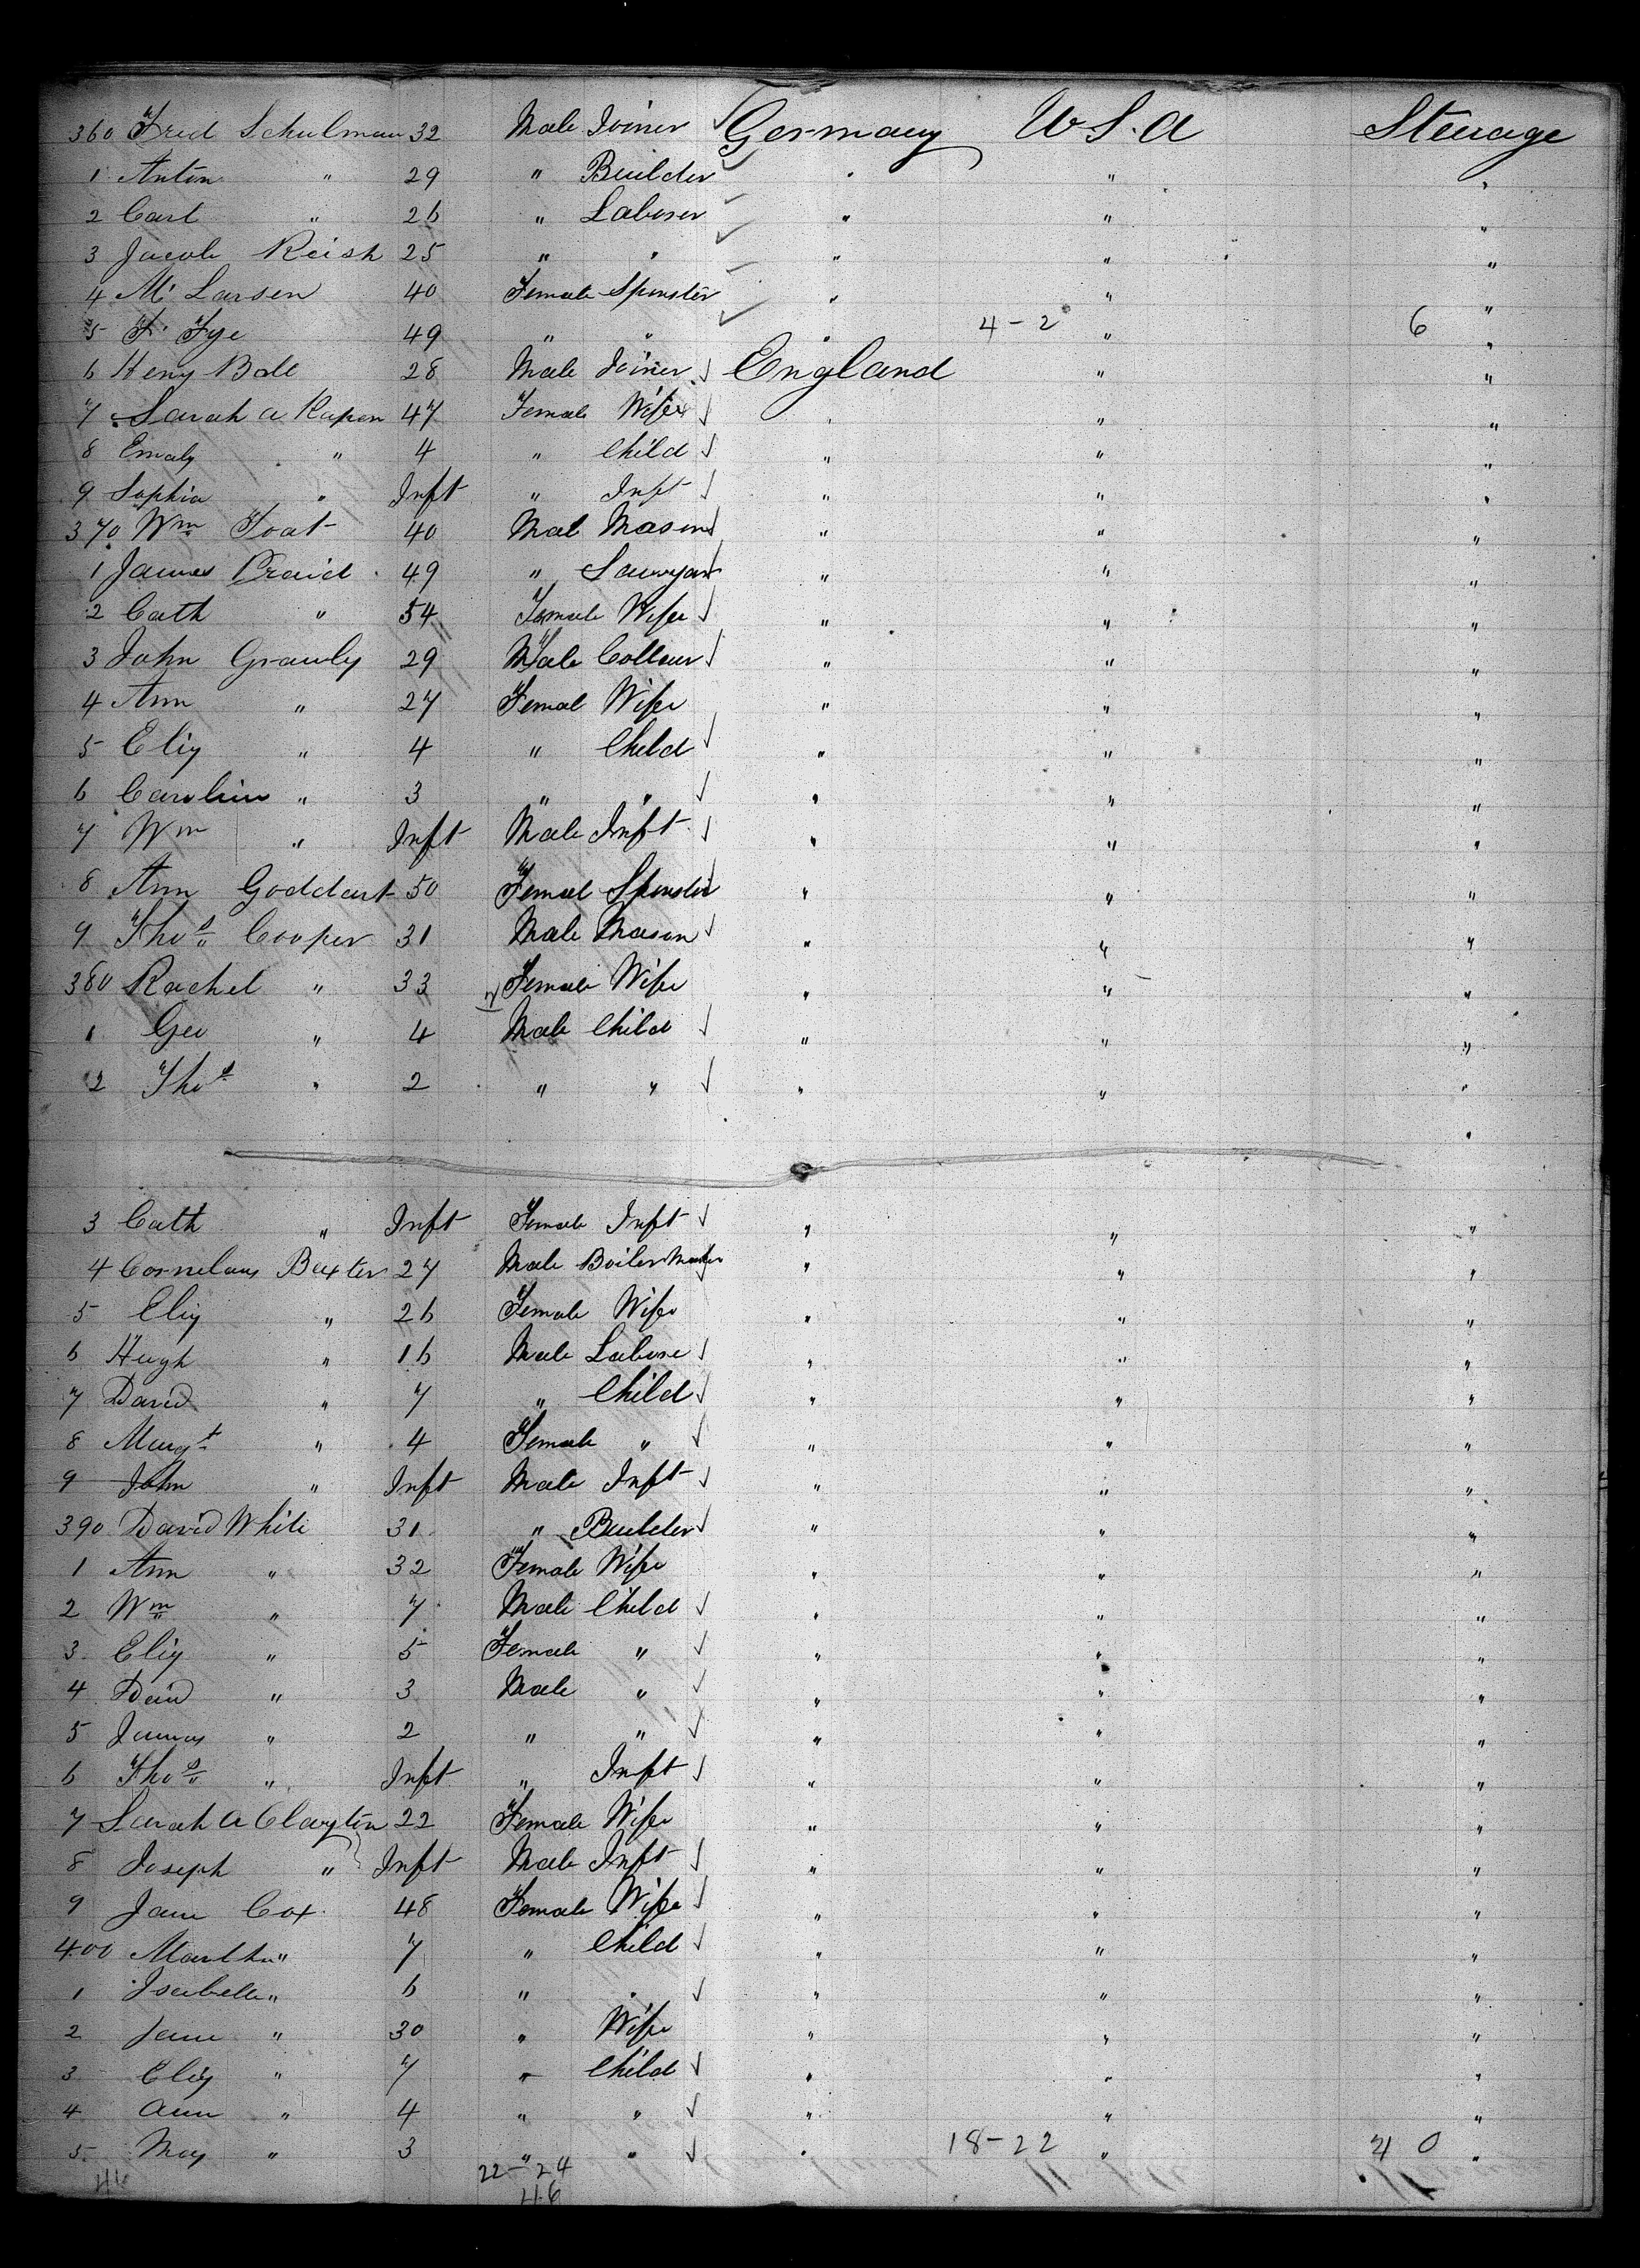 360 Fred Schulman 32 Male Joiner Germany U.S.A Steerage
1 Anton " 29 " Builder " " "
2 Carl " 26 " Laborer " " "
3 Jacob Reish 25 " " " " "
4 M. Larsen 40 Female Spinster " " "
5 F. Fye 49 " " " 4-2 " 6 "
6 Heny Ball 28 Male Joiner England " "
7 Sarah A Rapen 47 Female Wife " " "
8 Emaly " 4 " Child " " "
9 Sophia " Inft " Inft " " "
370 Wm Toat 40 Mal Mason " " "
1 James Praid 49 " Sawyar " " "
2 Cath " 54 Female Wife " " "
3 John Grauly 29 Male Collier " " "
4 Ann " 27 Femal Wife " " "
5 Eliz " 4 " Child " " "
6 Carolin " 3 " " " " "
7 Wm " Inft Male Inft " " "
8 Ann Goddart 50 Femal Spinster " " "
9 Thos Cooper 31 Male Mason " " "
380 Rachel " 33 Female Wife " " "
1 Geo " 4 Male Child " " "
2 Thos " 2 " " " " "
"
3 Cath " Inft Female Inft " " "
4 Cornelaus Baxter 27 Male Boiler Maker " " "
5 Eliz " 26 Female Wife " " "
6 Hugh " 16 Male Labore " " "
7 David " 7 " Child " " "
8 Margt " 4 Female " " " "
9 John " Inft Male Inft " " "
390 David White 31 " Builder " " "
1 Ann " 32 Female Wife " " "
2 Wm " 7 Male Child " " "
3 Eliz " 5 Female " " " "
4 David " 3 Male " " " "
5 James " 2 " " " " "
6 Thos " Inft " Inft " " "
7 Sarah A Clayton 22 Female Wife " " "
8 Joseph " Inft Male Inft " " "
9 Jane Cox 48 Female Wife " " "
400 Martha " 7 " Child " " "
1 Isabella " 6 " " " " "
2 Jane " 30 " Wife " " "
3 Eliz " 7 " Child " " "
4 Ann " 4 " " " " "
5 May " 3 " " " 18-22 " 40 "
46 22-24
46